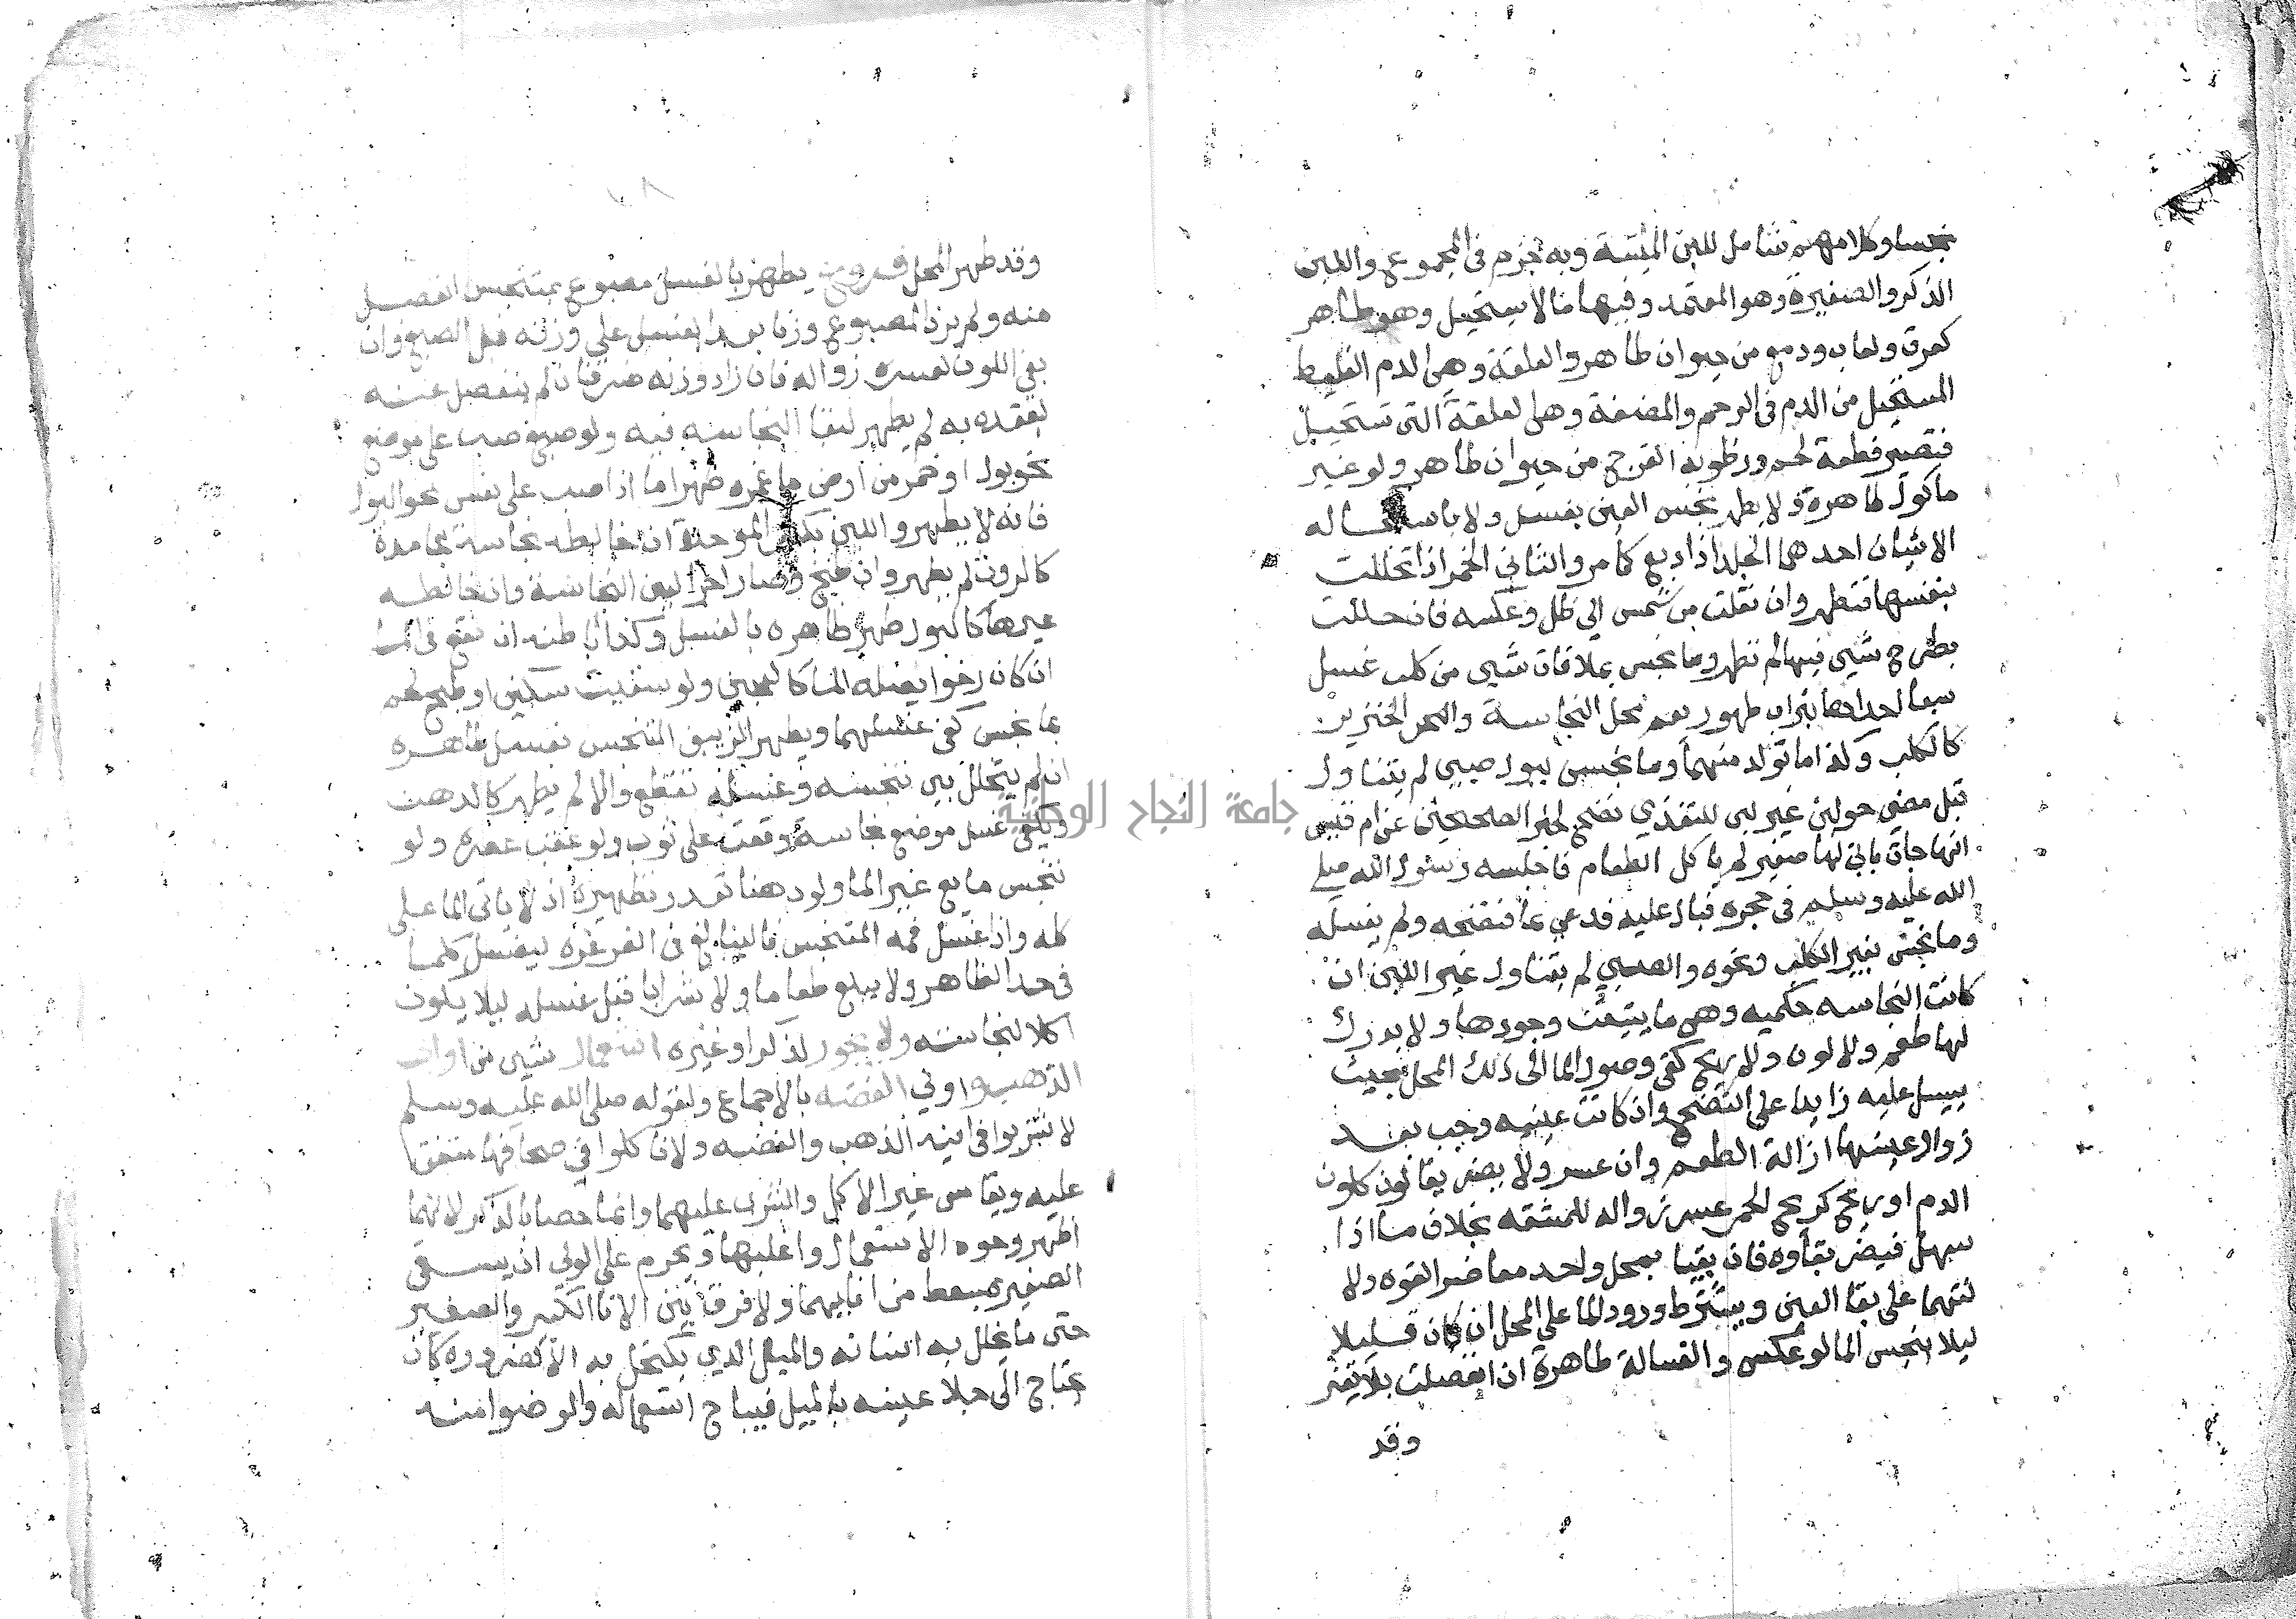 نجسا وكلامهم شامل للبن الميتة وبه جزم في المجموع واللبن
الذكر والصغيرة وهو المعتمد وفيها ما لا يستحيل وهو طاهر
كعرق ولعاب ودمع من حيوان طاهر والعلقة وهي الدم الغليظ
المستحيل من الدم في الرحم والمضغة وهي العلقة التي تستحيل
فتصير قطعة لحم ورطوبة الفرج من حيوان طاهر ولو غير
ماكول طاهرة ولا يطهر نجس العين بغسل ولا باستحاله
الا شيان احدهما الجلد اذا دبغ كما مر والثاني الخمر اذا تخللت
بنفسها فتطهر وان نقلت من شمس الي ظل وعكسه فان خللت
بطرح شيي فيها لم تطهر وما نجس بملاقات شيي من كلب غسل
سبعا احداها بتراب طهور يعم محل النجاسة والخنزير
كالكلب وكذا ما تولد منهما وما نجس ببول صبي لم يتناول
قبل مضي حولين غير لبن للتغذي نضح لخبر الصحيحين عن ام قيس
انها جات بابن لها صغير لم ياكل الطعام فاجلسه رسول الله صلي
الله عليه وسلم في حجره فبال عليه فدعي بما فنضحه ولم يغسله
وما نجس بغير الكلب ونحوه والصبي لم يتناول غير اللبن ان
كانت النجاسه حكميه وهي ما يتيقن وجودها ولا يدرك
لها طعم ولا لون ولا ريح كفي وصول الما الى ذلك المحل بحيث
يسيل عليه زايدا على النضح وان كانت عينيه وجب بعد
زوال عينها ازالة الطعم وان عسر ولا يضر بقا لون كلون
الدم او ريح كريح الخمر عسر زواله للمشقه بخلاف ما اذا
سهل فيضر بقاوه فان بقيا بمحل واحد معا ضر لقوه دلا
لتهما على بقا العين ويشترط ورود الما علي المحل ان كان قليلا
ليلا ينجس الما لو عكس والغسالة طاهرة ان انفصلت بلا تغير
وقد
وقد طهر المحل فروع يطهر بالغسل مصبوغ بمتنجس انفصل
منه ولم يزد المصبوغ وزنا بعد الغسل علي وزنه قبل الصبغ وان
بقي اللون لعسره زواله فان زاد وزنه ضر فان لم ينفصل عنه
لتعقده به لم يطهر لبقا النجاسه فيه ولو صب على موضع
نحو بول او خمر من ارض ما غمره طهر اما اذا صب على نفس نحو البول
فانه لا يطهر واللبن بكسر الموحدة ان خالطه نجاسة جامدة
كالروث لم يطهر وان طبخ وصار اجرا لعين النجاسة وان خالطه
غيرها كالبول طهر ظاهره بالغسل وكذا باطنه ان نقع في الما
ان كان رخوا يصله الما كالعجين ولو سقيت سكين او طبخ لحم
بما نجس كفى غسلهما ويطهر الزيبق المتنجس بغسل ظاهره
ان لم يتخلل بين تنجسه وغسله تقطع والا لم يطهر كالدهن
ويكفي غسل موضع نجاسة وقعت على ثوب ولو عقب عصره ولو
تنجس مايع غير الما ولو دهنا تعذر تطهيره اذ لا ياتي الما على
كله واذا غسل فمه المتنجس فاليبالغ في الغرغره ليغسل كلما
في حد الظاهر ولا يبلع طعاما ولا شرابا قبل غسله ليلا يكون
اكلا لنجاسه ولا يجوز لذكر او غيره استعمال شيي من اوان
الذهب واوني الفضه بالاجماع ولقوله صلي الله عليه وسلم
لا تشربوا في انيه الذهب والفضه ولا تاكلوا في صحافها متفق
عليه ويقاس غير الاكل والشرب عليهما وانما خصا بالذكر لانهما
اظهر وجوه الاستعمال واغلبها ويحرم علي الولي ان يسقي
الصغير بمسعط من انايهما ولا فرق بين الانا الكبير والصغير
حتى ما يخلل به اسنانه والميل الذي يكتحل به الا لضروره كان
يحتاج الى جلا عينه بالميل فيباح استعماله والوضوا منه
جامعة النجاح الوطنية